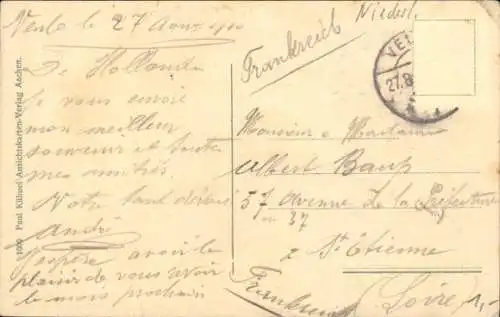 le 27 Aout
De Hollande
Je vous envoie
mon meilleur
souvenir et toutes
mes amitiés.
Votre tout dévoué
André
J'espère avoir le
plaisir de vous revoir
le mois prochain
1000 Paul Killisel Ansichtskarten-Verlag Aachen.
Frankreich
Niederl.
VEL
27.8
Monsieur &
Albert
57 Avenue de la Préfecture
ou 37
a St Étienne
Frankreich
(Loire)
1,-